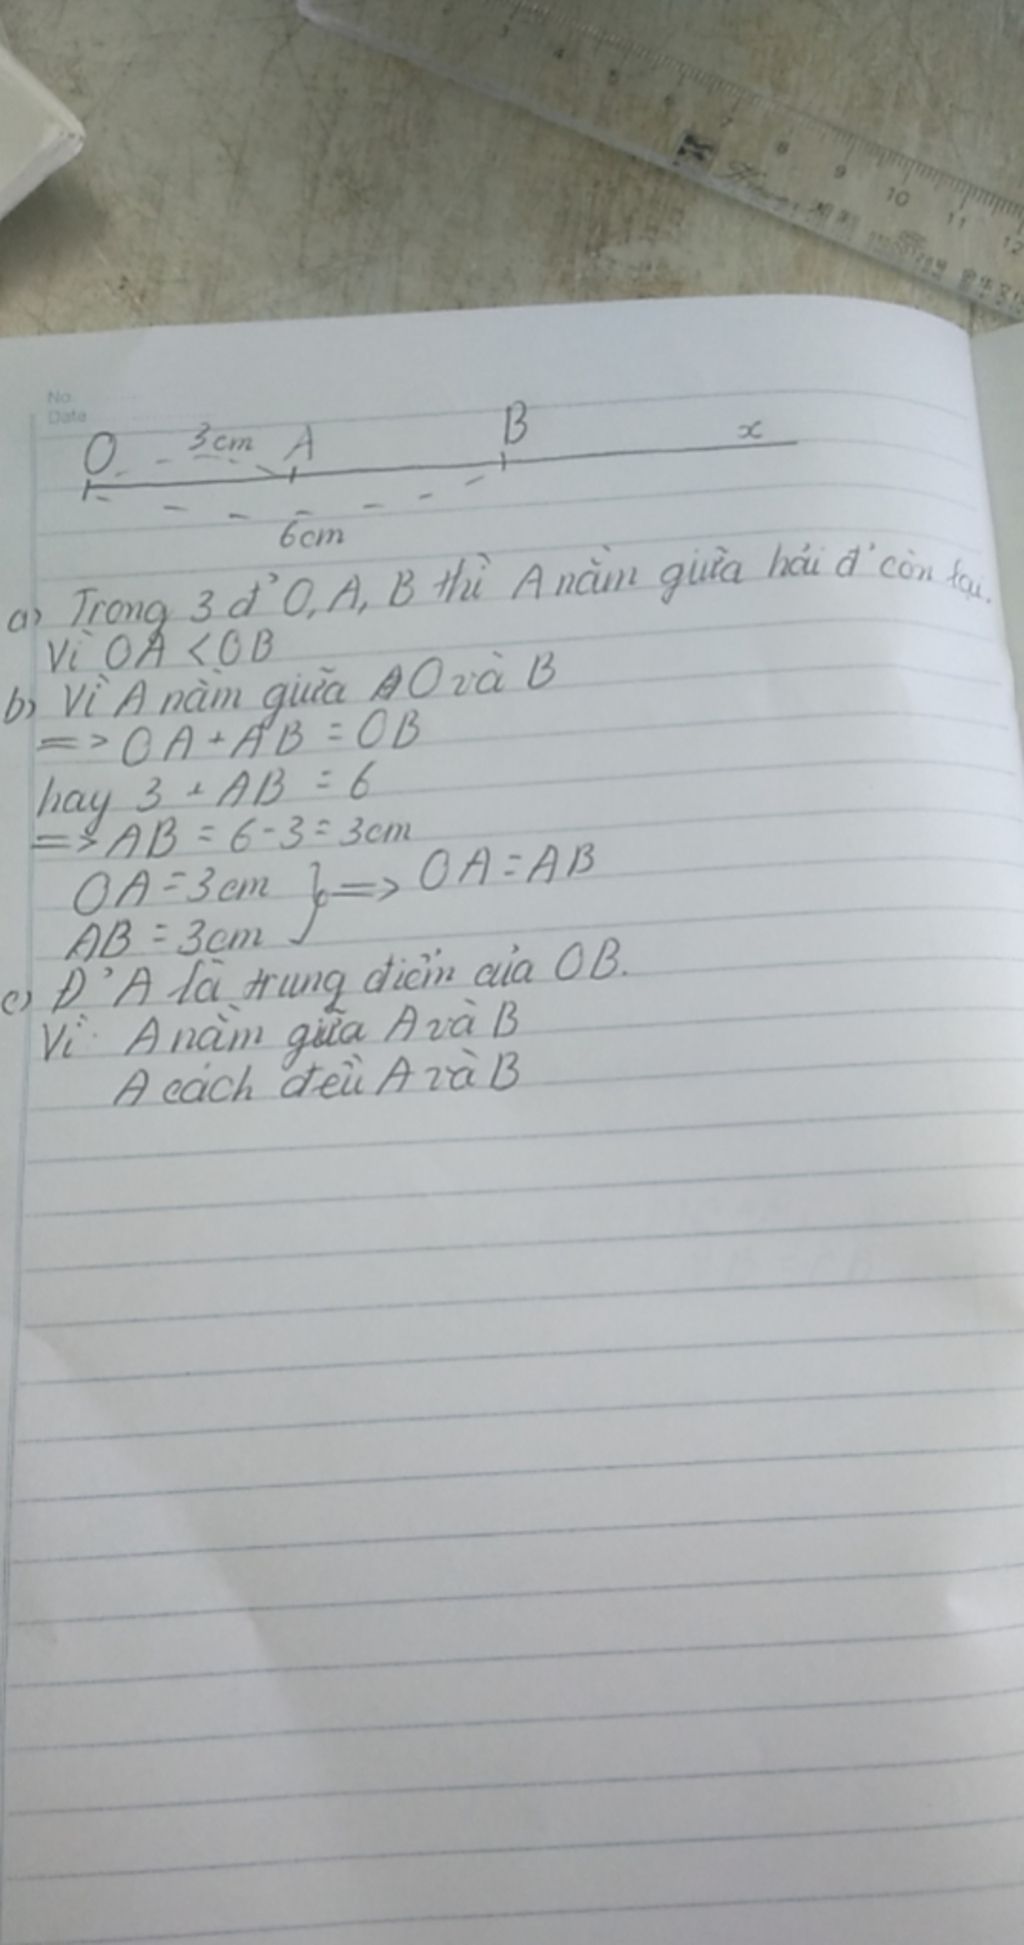 3 4 5 6 7 8 9 10 11 12
No.
Date
O 3cm A B x
6cm
a) Trong 3 đ' O, A, B thì A nằm giữa hai đ' còn lại.
Vì OA < OB
b) Vì A nằm giữa O và B
=> OA + AB = OB
hay 3 + AB = 6
=> AB = 6 - 3 = 3cm
OA = 3cm } => OA = AB
AB = 3cm
c) Đ' A là trung điểm của OB.
Vì A nằm giữa A và B
A cách đều A và B